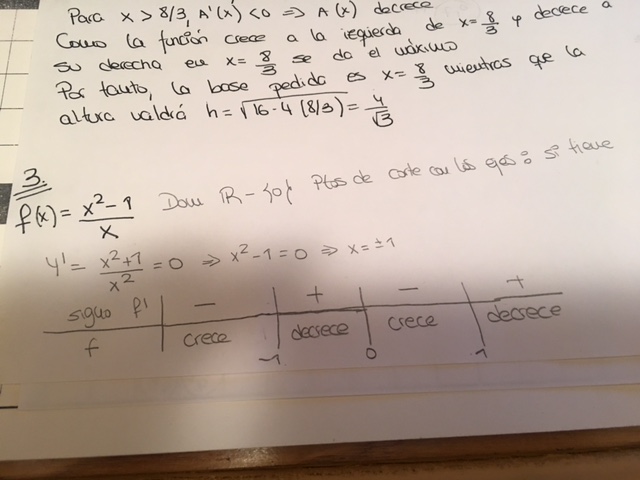 Para x > 8/3, A'(x) < 0 ⇒ A(x) decrece
Como la función crece a la izquierda de x = 8/3 y decrece a
su derecha en x = 8/3 se da el máximo
Por tanto, la base pedida es x = 8/3 mientras que la
altura valdrá h = √(16 - 4(8/3)) = 4/√3
3.
f(x) = (x² - 1)/x Dom ℝ - {0} Ptos de corte con los ejes: si tiene
y' = (x² + 1)/x² = 0 ⇒ x² - 1 = 0 ⇒ x = ±1
signo f' | - | + | - | +
f | crece | decrece | crece | decrece
-1 0 1